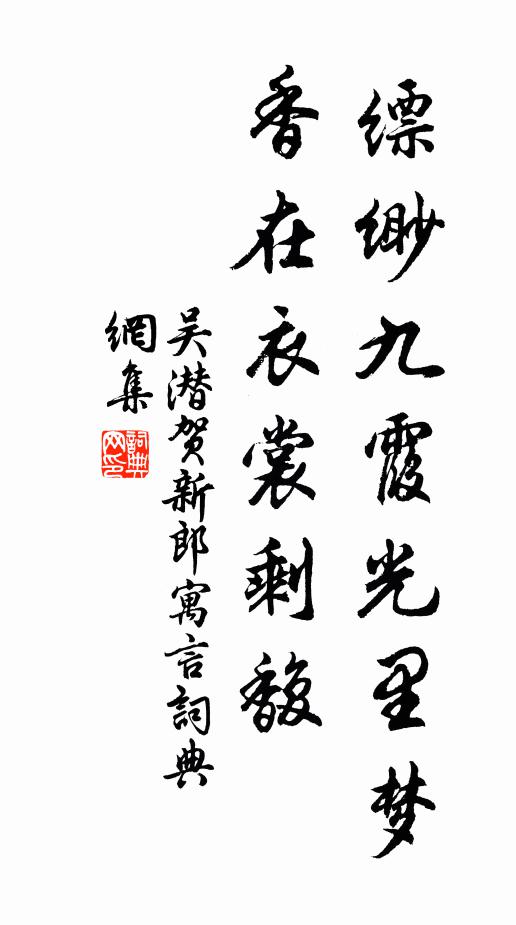 缥缈九霞光里梦
香在衣裳剩馥
吴潜贺新郎寓言詞典
網集
詞典
网印